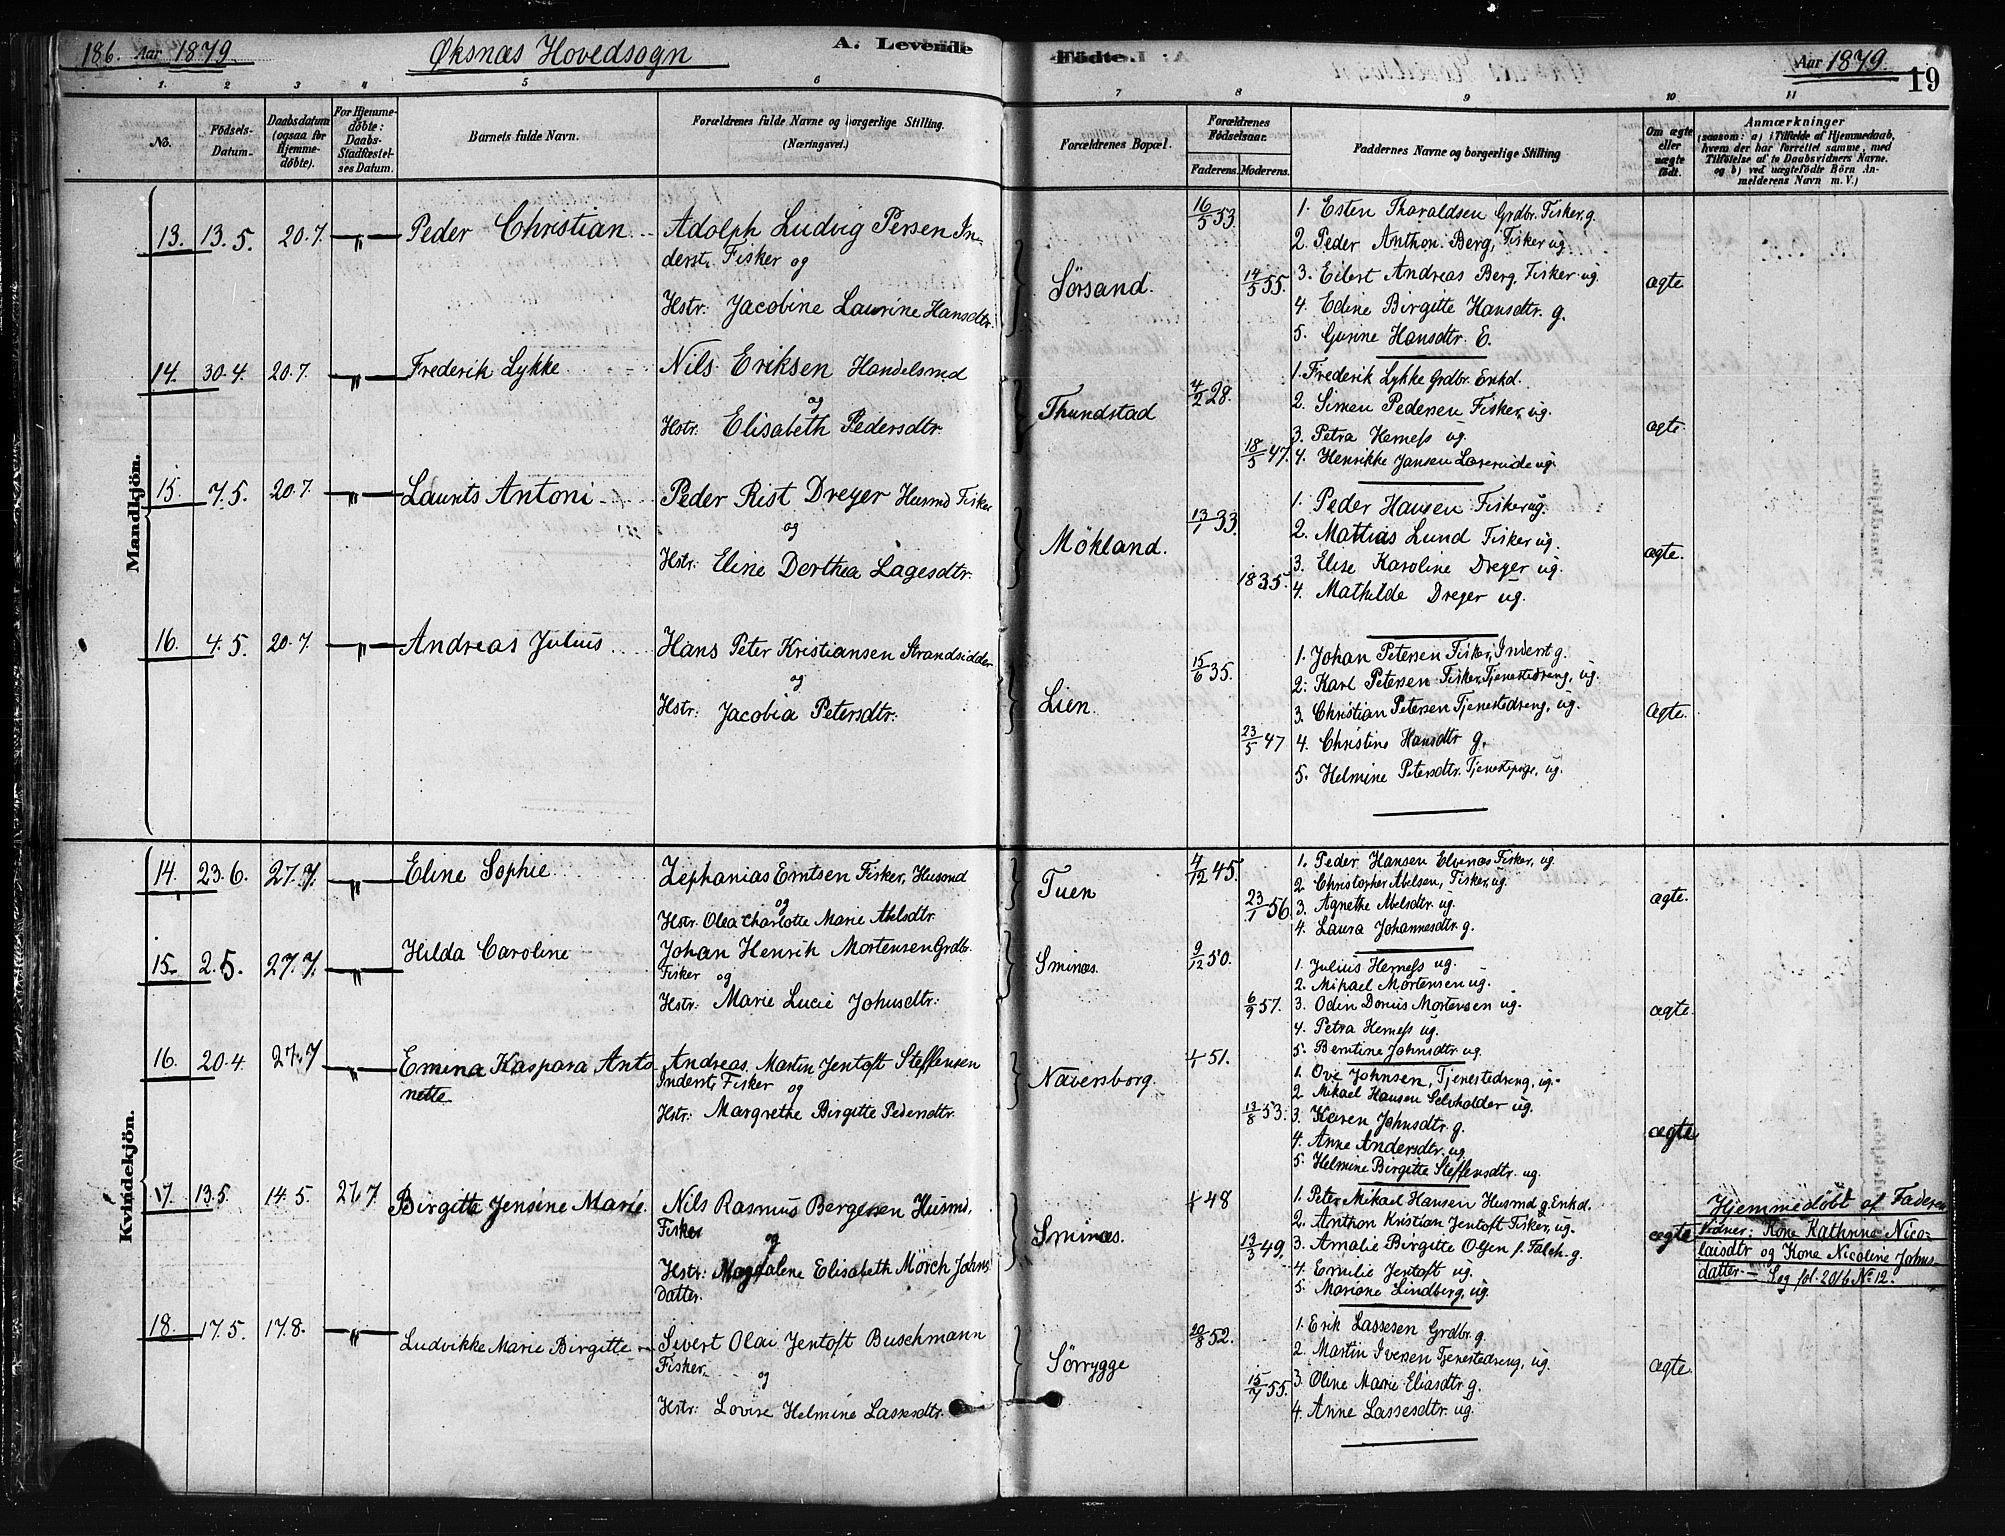 186. Aar 1879
Øksnæs Hovedsogn
A. Levende
Fødte.
Aar 1879.
19
1.
2
3
4
5
6
7
8
9
10
11
No.
Fødsels-
Datum.
Daabsdatum
(ogsaa for
Hjemme-
døbte).
For Hjemme-
døbte:
Daabs-
Stadfæstel-
ses Datum.
Barnets fulde Navn.
Forældrenes fulde Navne og borgerlige Stilling.
(Næringsvei.)
Forældrenes Bopæl.
Forældrenes
Fødselsaar.
Faderens. Moderens.
Faddernes Navne og borgerlige Stilling
Om ægte
eller
uægte
født.
Anmærkninger
(saasom: a) i Tilfælde af Hjemmedaab,
hvem der har forrettet samme, med
Tilføielse af to Daabsvidners Navne.
og b) ved uægtefødte Børn An-
melderens Navn m. V.)
Mandkjön.
13. 13.5. 20.7. —"— Peder Christian
Adolph Ludvig Persen In-
derst, Fisker og
Hstr: Jacobine Laurine Hansdtr.
Sörsand.
16/5 53
14/5 55.
1. Esten Tharaldsen Grdbr. Fisker, g.
2. Peder Anthon Berg, Fisker ug
3. Eilert Andreas Berg, Fisker ug.
4. Edine Birgitte Hansdtr. g.
5. Gurine Hansdtr. E.
ægte
14. 30.4. 20.7. —"— Frederik Lykke
Nils Eriksen Handelsmd
og
Hstr: Elisabeth Pedersdtr.
Thundstad
4/2 28.
18/5 47.
1. Frederik Lykke Grdbr. Enkd.
2. Simen Pedersen Fisker, ug.
3. Petra Herness ug.
4. Henrikke Jansen Lærerinde ug.
ægte.
15. 7.5. 20.7. —"— Laurits Antoni
Peder Rist Dreyer Husmd Fisker
og
Hstr: Eline Dorthea Lagesdtr.
Mökland.
13/1 33
1835.
1. Peder Hansen Fisker ug.
2. Mathias Lund Fisker ug.
3. Elise Karoline Dreyer ug.
4. Mathilde Dreyer ug.
ægte.
16. 4.5. 20.7. —"— Andreas Julius
Hans Peter Kristiansen Strandsidder
og
Hstr: Jacobia Petersdtr.
Lien.
15/6 35.
23/5 47
1. Johan Petersen Fisker, Inderst g.
2. Karl Petersen Fisker, Tjenestedreng, ug.
3. Christian Petersen Tjenestedreng, ug.
4. Christine Hansdtr g.
5. Helmine Petersdtr. Tjenestepige, ug.
ægte.
Kvindekjön.
14. 23.6. 27.7. —"— Eline Sophie
Zephanias Erntsen Fisker, Husmd
og
Hstr: Olea Charlotte Marie Ablsdtr.
Tuen
4/12 45.
23/1 56.
1. Peder Hansen Elvenæs Fisker, ug
2. Christopher Abelsen, Fisker, ug.
3. Agnethe Abelsdtr. ug.
4. Laura Johannesdtr. g.
ægte.
15. 2.5. 27.7. —"— Hilda Caroline
Johan Henrik Mortensen Grdbr.
Fisker og
Hstr: Marie Lucie Johnsdtr:
Sminæs.
9/12 50.
6/9 57.
1. Julius Herness ug.
2. Mikael Mortensen ug.
3. Odin Dorius Mortensen ug.
4. Petra Herness ug.
5. Berntine Johnsdtr. ug.
ægte.
16. 20.4 27.7 —"— Emina Kaspara Anto
nette
Andreas Martin Jentoft Steffensen
Inderst, Fisker og
Hstr: Margrethe Birgitte Pedersdtr.
Naversborg.
1/1 51.
13/8 53.
1. Ove Johnsen, Tjenestedreng, ug.
2. Mikael Hansen Selvholder ug.
3. Karen Johnsdtr. g.
4. Anne Andersdtr. ug
5. Helmine Birgitte Steffensdtr. ug.
ægte
17. 13.5. 14.5. 27.7. Birgitte Jensine Marie.
Nils Rasmus Bergersen Husmd,
Fisker
og
Hstr: Magdalene Elisabeth Mörch Johns
datter.
Sminæs.
1/1 48
13/3 49.
1. Peter Mikael Hansen Husmd g. Enkd.
2. Anthon Kristian Jentoft Fisker, ug.
3. Amalie Birgitte Olsen f. Falch. g.
4. Emilie Jentoft ug.
5. Mariane Lindberg, ug.
ægte
Hjemmedøbt af Faderen
Vidner: Kone Kathrine Nico-
laisdtr og Kone Nicoline Johns-
datter — Seg fol. 201b No 12.
18. 17.5. 17.8. —"— Ludvikke Marie Birgitte
Sivert Olai Jentoft Buschmann
Fisker
og
Hstr: Lovise Helmine Lassesdtr.
Sörrygge
20/8 52.
15/7 55.
1. Erik Lassesen Grdbr. g.
2. Martin Iversen Tjenestedreng, ug.
3. Oline Marie Eliasdtr g.
4. Anne Lassesdtr. ug.
ægte.